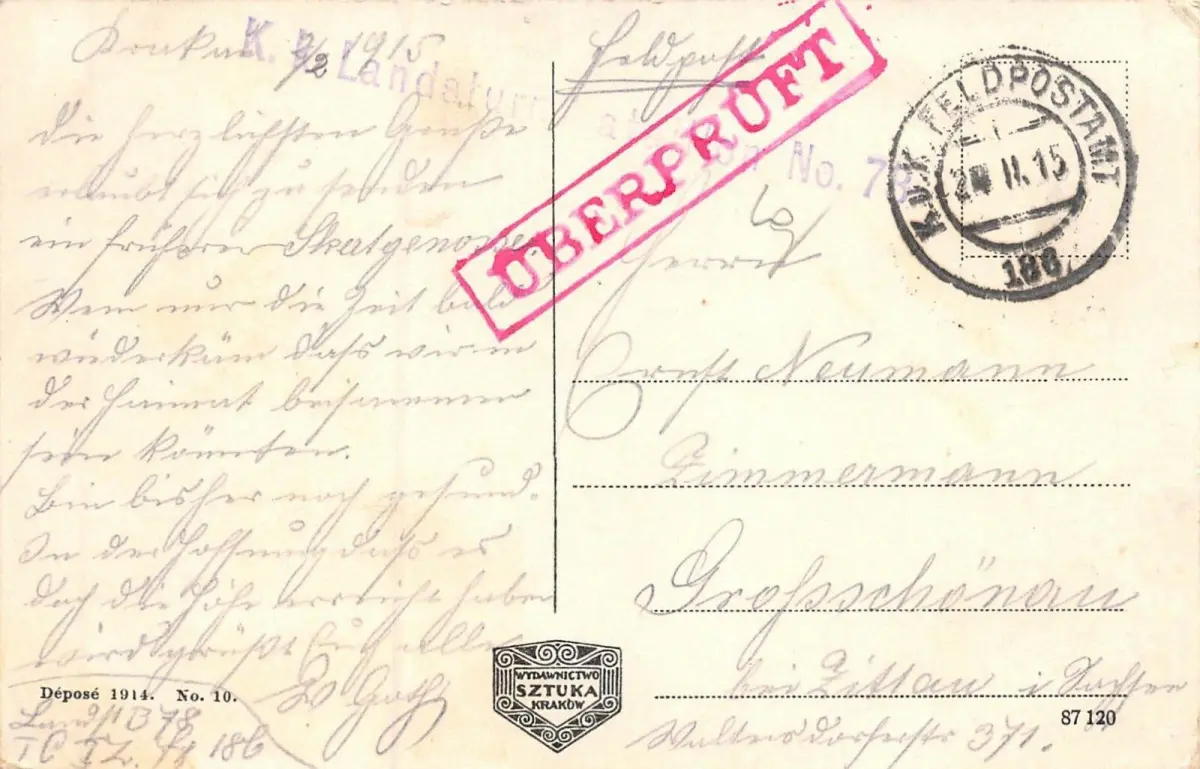 Krakau 9/2 1915
Die herzlichsten Grüße
erlaubt sich zu senden
ein früherer Skatgenosse.
Wenn nur die Zeit bald
wiederkäm daß wir in
der Heimat beisammen
sein könnten.
Bin bisher noch gesund.
In der Hoffnung daß es
doch die Höhe erreicht haben
wird grüßt Euch alle
Déposé 1914. No. 10.
186
K. k. Landsturm No. 78
Feldpost
ÜBERPRÜFT
K.u.K. FELDPOSTAMT
II. 15
186
Herrn
Ernst Neumann
Zimmermann
Großschönau
bei Zittau i Sachsen
Waltersdorferstr 371.
87 120
WYDAWNICTWO
SZTUKA
KRAKÓW